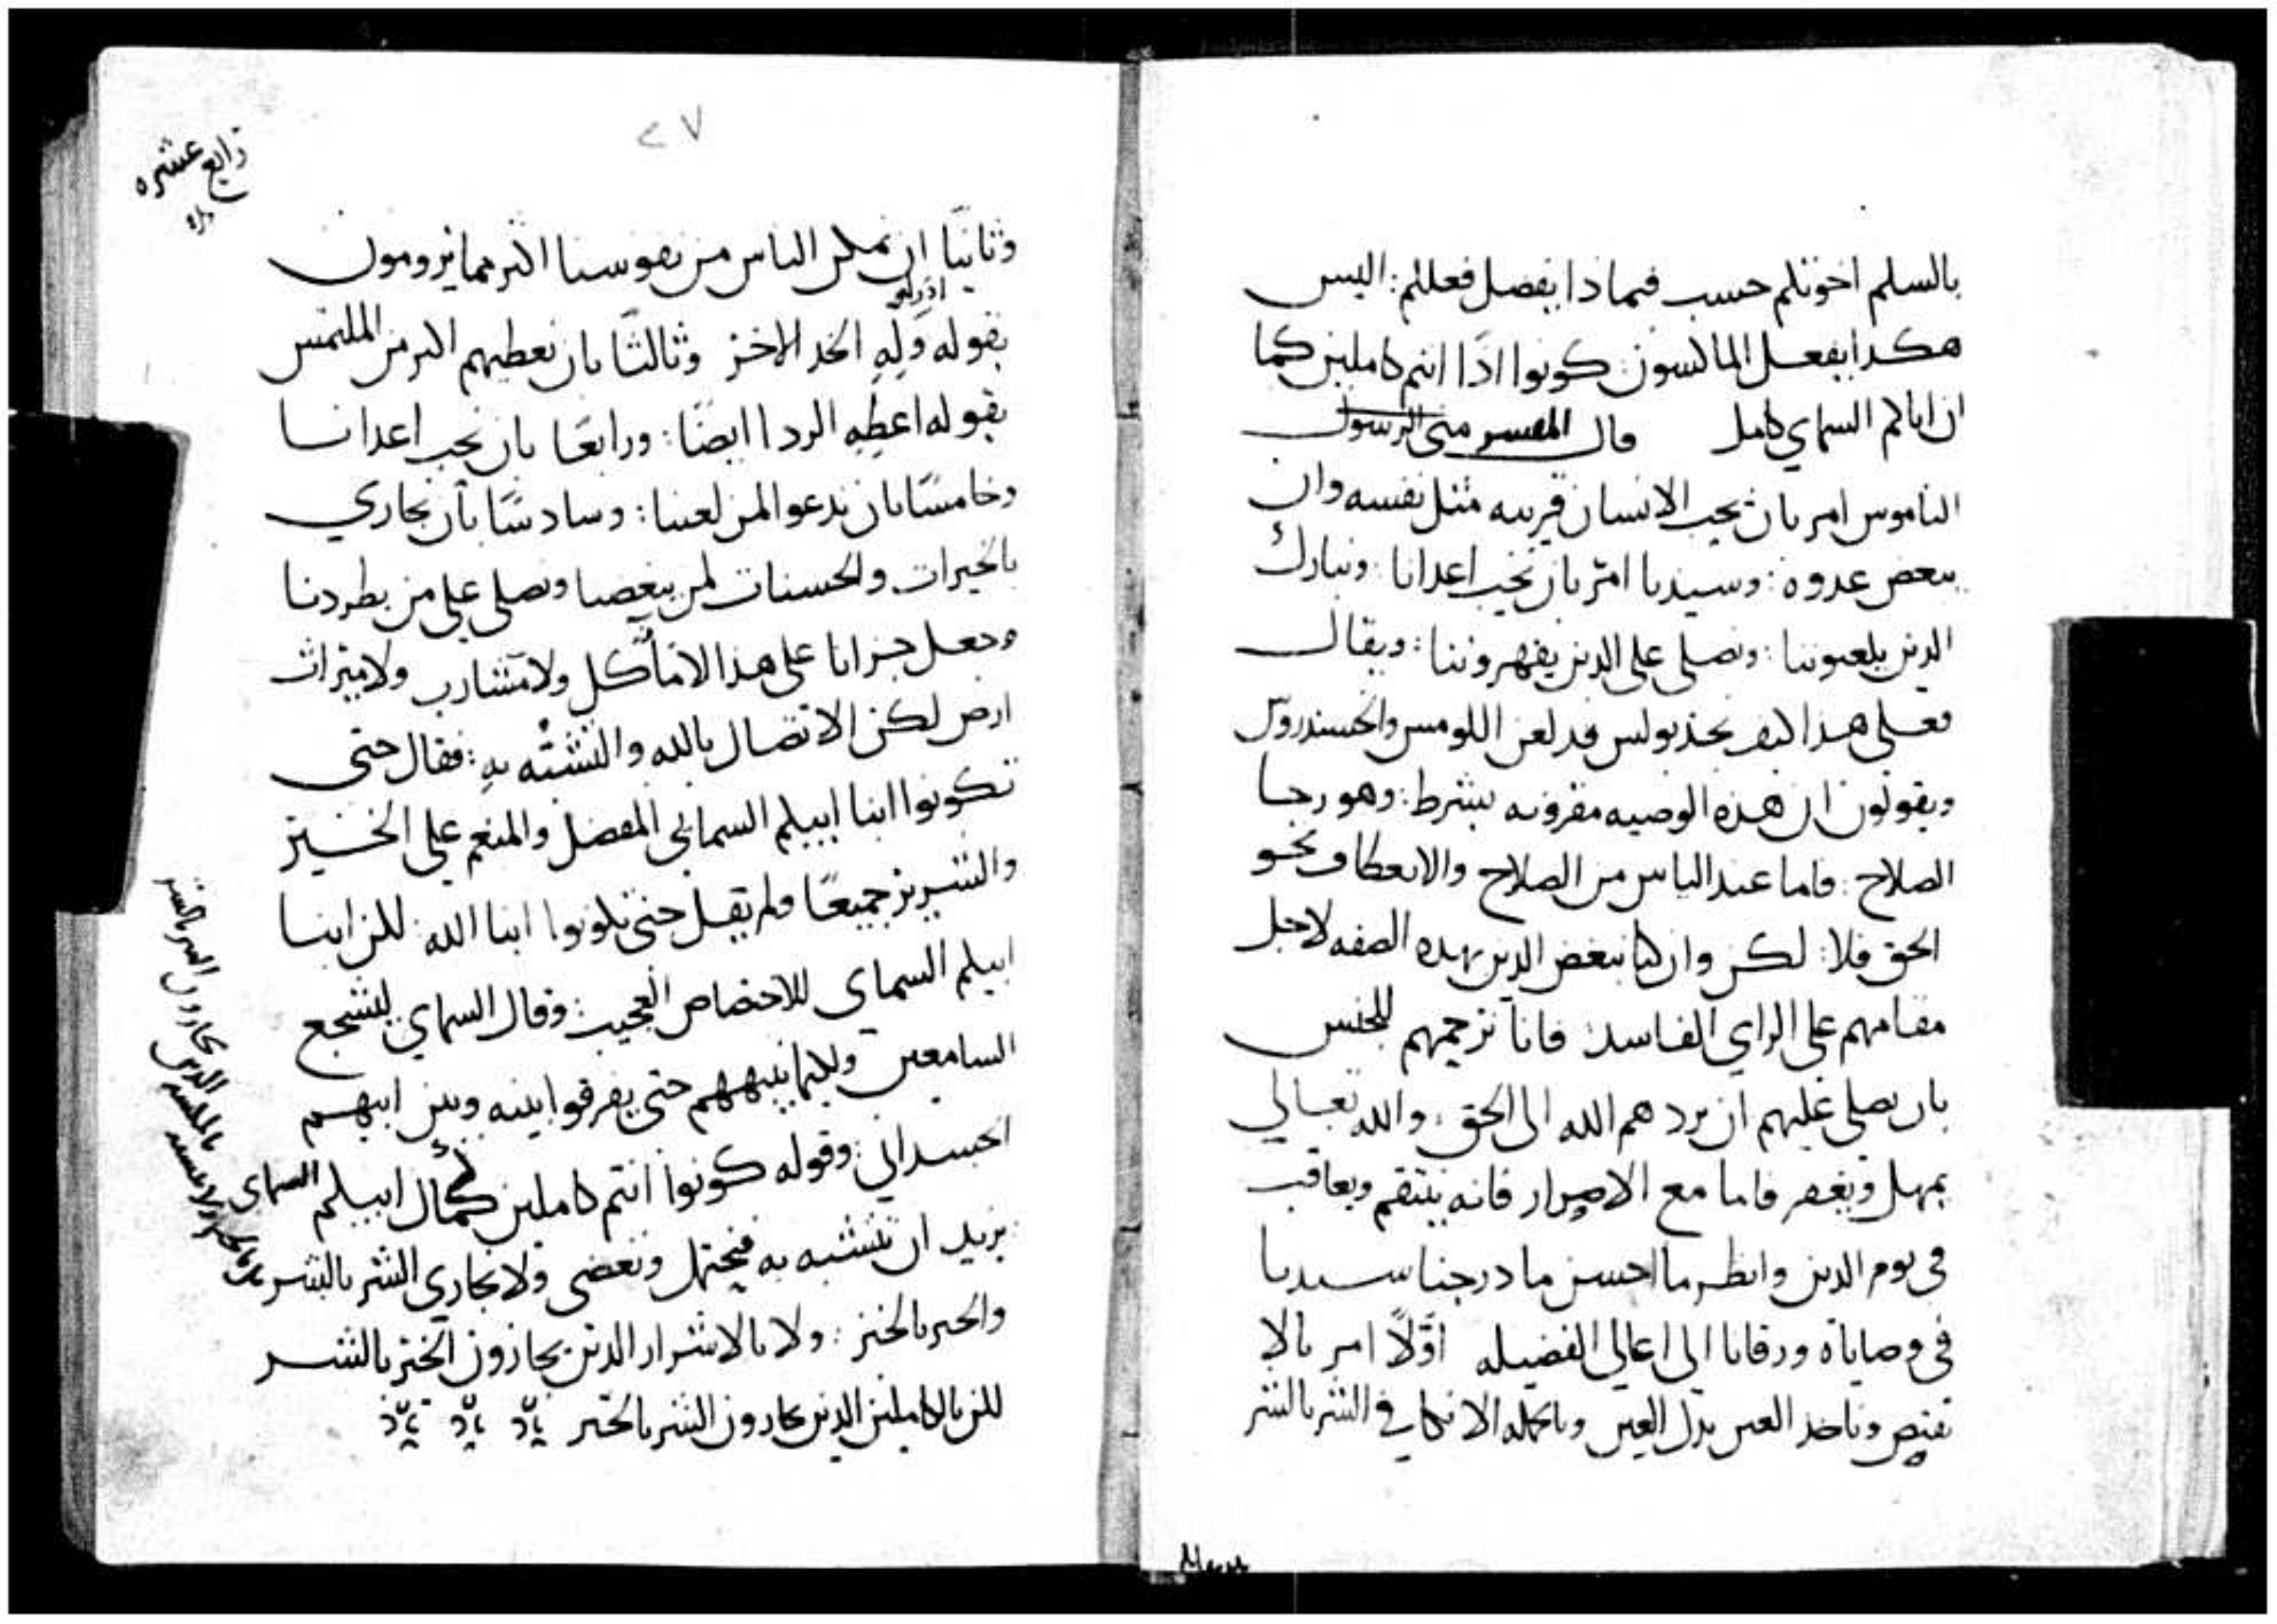 بالسلم اخوتكم حسب فماذا يفضل فعلكم: اليس
هكدا يفعل الماكسون كونوا اذًا انتم كاملين كما
ان اباكم السماي كامل قال المفسر متى الرسول
الناموس امر بان يحب الانسان قريبه مثل نفسه وان
يبغض عدوه: وسيدنا امر بان نحب اعدانا ونبارك
الدين يلعنوننا: ونصلي على الدين يقهروننا: ويقال
فعلى هدا كيف نجد بولس قد لعن
ويقولون ان هذه الوصيه مقرونه بشرط: وهو رجا
الصلاح: فاما عند الياس من الصلاح والانعطاف نحو
الحق فلا: لكن وان كنا نبغض الدين بهده الصفه لاجل
مقامهم على الراي الفاسد: فانا نرحمهم للجنس
بان نصلي عليهم ان يردهم الله الى الحق: والله تعالي
يمهل ويغفر فاما مع الاصرار فانه ينتقم ويعاقب
في يوم الدين وانظر ما احسن ما درجنا سيدنا
في وصاياه ورقانا الى اعالي الفضيله اوّلًا امر بالا
نقتص وناخد العين بدل العين وبالجمله الا نكافي الشر بالشر
٢٧
رابع عشره
وثانيًا ان نمكن الناس من نفوسنا اكثر مما يرومون
بقوله وَلِّهِ الخد الاخر وثالثًا بان نعطيهم اكثر من الملتمس
بقوله اعطِهِ الردا ايضًا: ورابعًا بان نحب اعدانا
وخامسًا بان ندعو لمن لعننا: وسادسًا بان نجازي
بالخيرات والحسنات لمن يبغضنا ونصلي على من يطردنا
وجعل جزانا على هذا لا مآكل ولا مشارب ولا ميراث
ارض لكن الاتصال بالله والتشبّه بهِ: فقال حتى
تكونوا ابنا ابيكم السماني المفضل والمنعم على الخيرين
والشريرين جميعًا ولم يقل حتى تكونوا ابنا الله: لكن ابنا
ابيكم السماي للاختصاص العجيب: وقال السماي ليشجع
السامعين ولكيما ينبههم حتى يفرقوا بينه وبين ابيهم
الجسداني: وقوله كونوا انتم كاملين كمال ابيكم السماي
يريد ان نتشبه به فنحتمل ونغضي ولا نجازي الشر بالشر
والخير بالخير: ولا بالاشرار الدين يجازون الخير بالشر
لكن بالكاملين الدين يجازون الشر بالخير